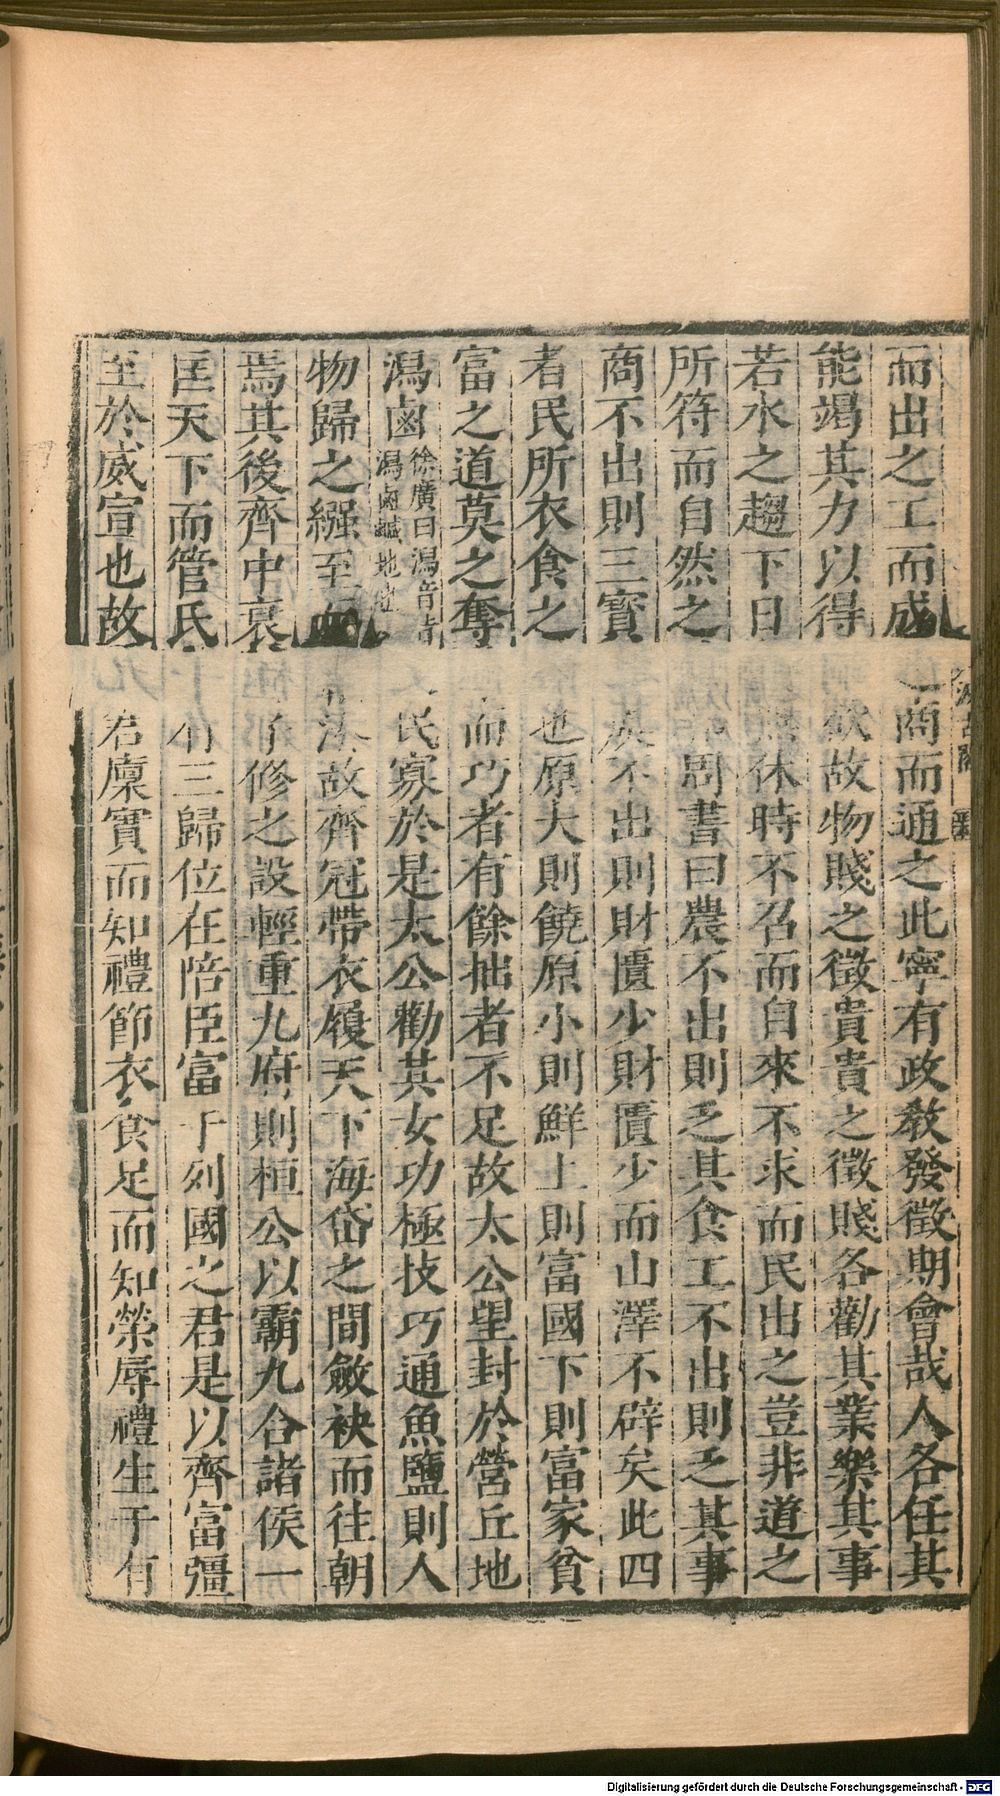 而出之工而成之商而通之此寧有政教發徵期會哉人各任其
能竭其力以得欲故物賤之徵貴貴之徵賤各勸其業樂其事
若水之趨下日休時不召而自來不求而民出之豈非道之
所符而自然之周書曰農不出則乏其食工不出則乏其事
商不出則三寶不出則財匱少財匱少而山澤不辟矣此四
者民所衣食之也原大則饒原小則鮮上則富國下則富家貧
富之道莫之奪而巧者有餘拙者不足故太公望封於營丘地
潟鹵徐廣曰潟音昔潟鹵鹹地也民寡於是太公勸其女功極技巧通魚鹽則人
物歸之繦至而湊故齊冠帶衣履天下海岱之間斂袂而往朝
焉其後齊中衰修之設輕重九府則桓公以霸九合諸侯一
匡天下而管氏有三歸位在陪臣富于列國之君是以齊富彊
至於威宣也故君廩實而知禮節衣食足而知榮辱禮生于有
Digitalisierung gefördert durch die Deutsche Forschungsgemeinschaft - DFG